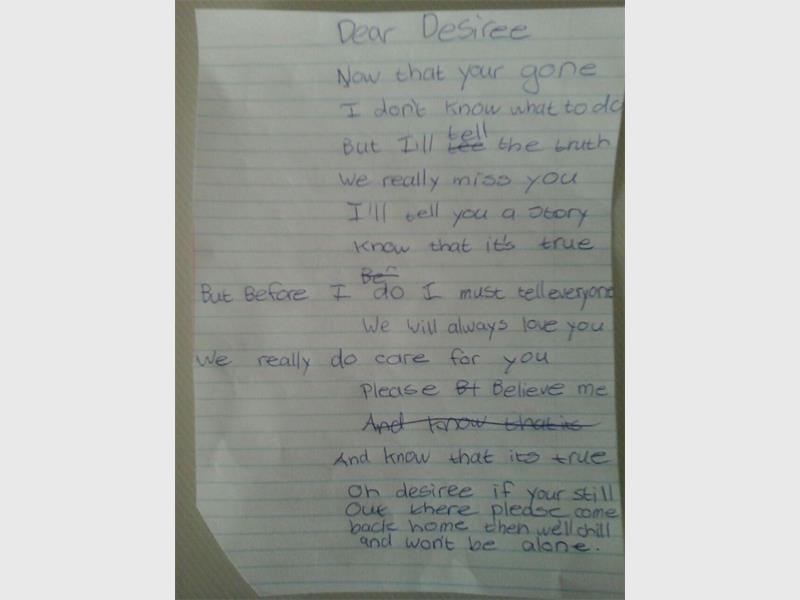 Dear Desiree
Now that your gone
I don't know what to do
But I'll tell the truth
We really miss you
I'll tell you a story
Know that it's true
But Before I do I must tell everyone
We will always love you
We really do care for you
Please Believe me
And know that its
And know that its true
Oh desiree if your still
Out there please come
back home then we'll chill
and won't be alone.